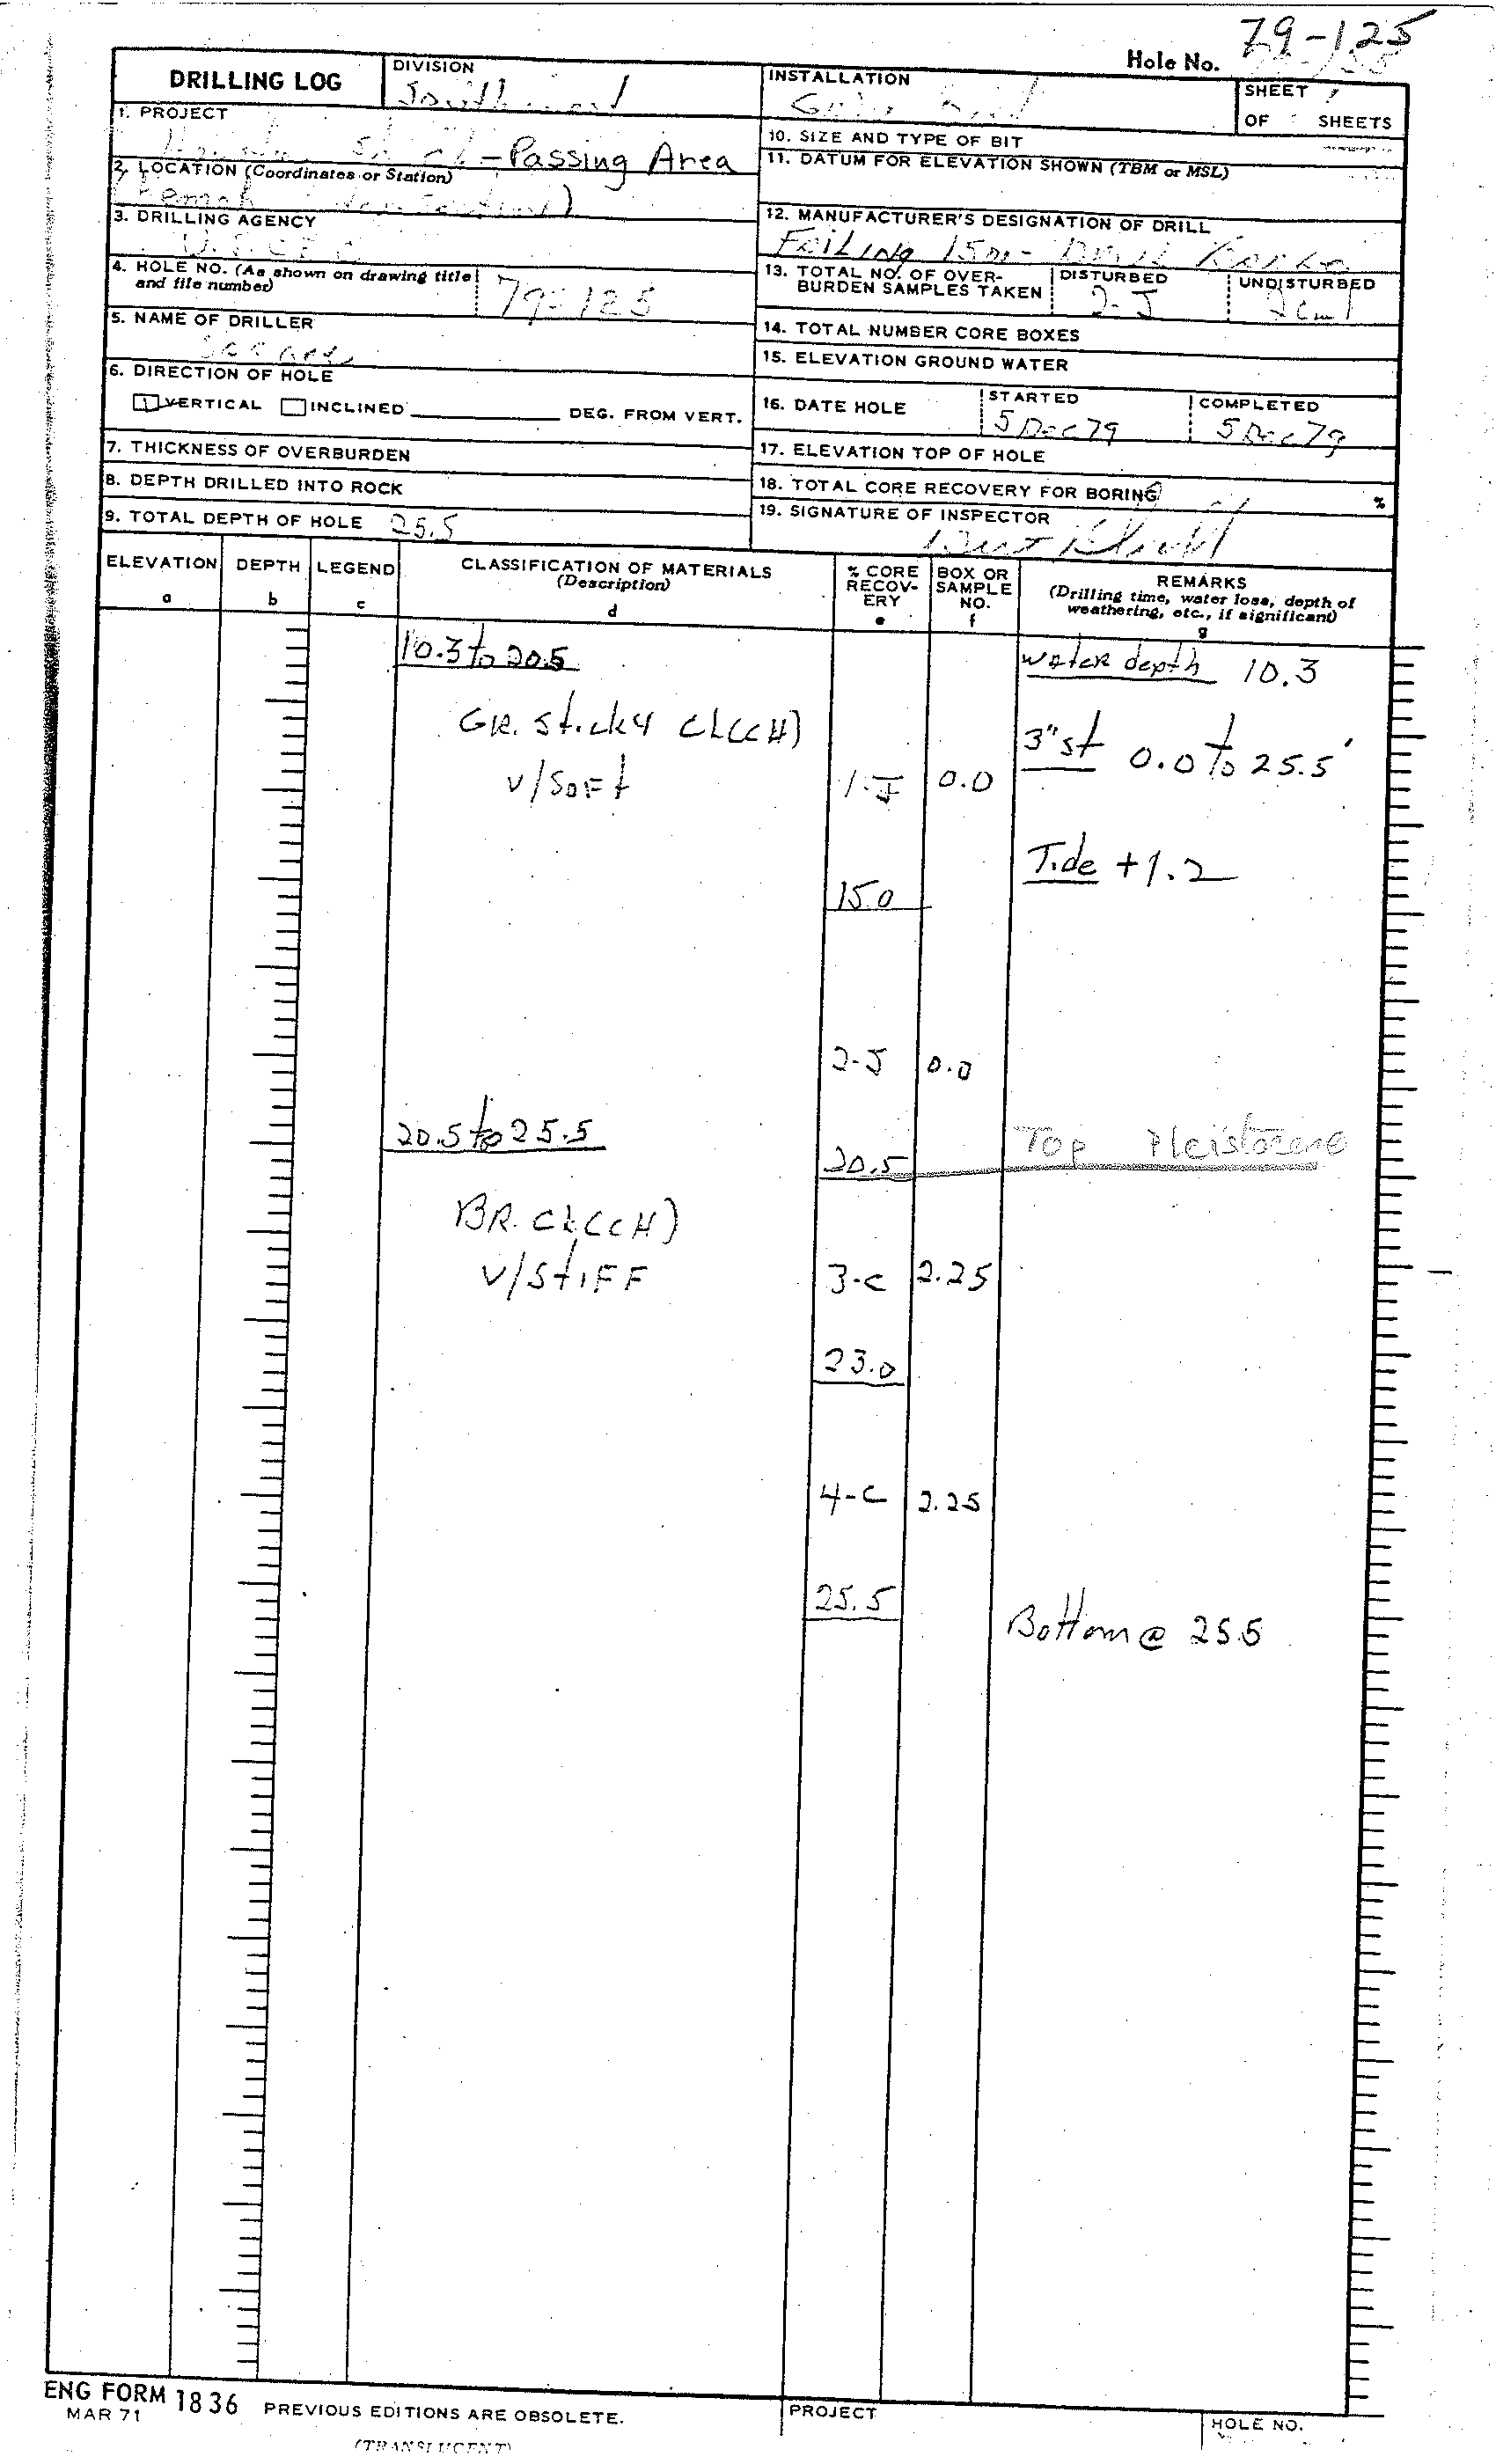 79-125
Hole No.
DRILLING LOG
DIVISION
INSTALLATION
SHEET
OF SHEETS
1. PROJECT
- Passing Area
10. SIZE AND TYPE OF BIT
11. DATUM FOR ELEVATION SHOWN (TBM or MSL)
2. LOCATION (Coordinates or Station)
3. DRILLING AGENCY
12. MANUFACTURER'S DESIGNATION OF DRILL
FAILING 1500-
4. HOLE NO. (As shown on drawing title and file number)
79-125
13. TOTAL NO. OF OVER-
BURDEN SAMPLES TAKEN
DISTURBED
2-J
UNDISTURBED
5. NAME OF DRILLER
14. TOTAL NUMBER CORE BOXES
15. ELEVATION GROUND WATER
6. DIRECTION OF HOLE
VERTICAL INCLINED DEG. FROM VERT.
16. DATE HOLE
STARTED
5 Dec 79
COMPLETED
5 Dec 79
7. THICKNESS OF OVERBURDEN
17. ELEVATION TOP OF HOLE
8. DEPTH DRILLED INTO ROCK
18. TOTAL CORE RECOVERY FOR BORING %
9. TOTAL DEPTH OF HOLE 25.5
19. SIGNATURE OF INSPECTOR
ELEVATION
a
DEPTH
b
LEGEND
c
CLASSIFICATION OF MATERIALS
(Description)
d
% CORE
RECOV-
ERY
e
BOX OR
SAMPLE
NO.
f
REMARKS
(Drilling time, water loss, depth of
weathering, etc., if significant)
g
10.3 to 20.5
water depth 10.3
GR. sticky CL(CH)
3" st 0.0 to 25.5'
V/SOFt
1-J 0.0
Tide +1.2
15.0
2-J 0.0
20.5 to 25.5
20.5
Top Pleistocene
BR. CL(CH)
V/StiFF
3-C 2.25
23.0
4-C 2.25
25.5
Bottom @ 25.5
ENG FORM 1836 PREVIOUS EDITIONS ARE OBSOLETE.
MAR 71
PROJECT
HOLE NO.
(TRANSLUCENT)